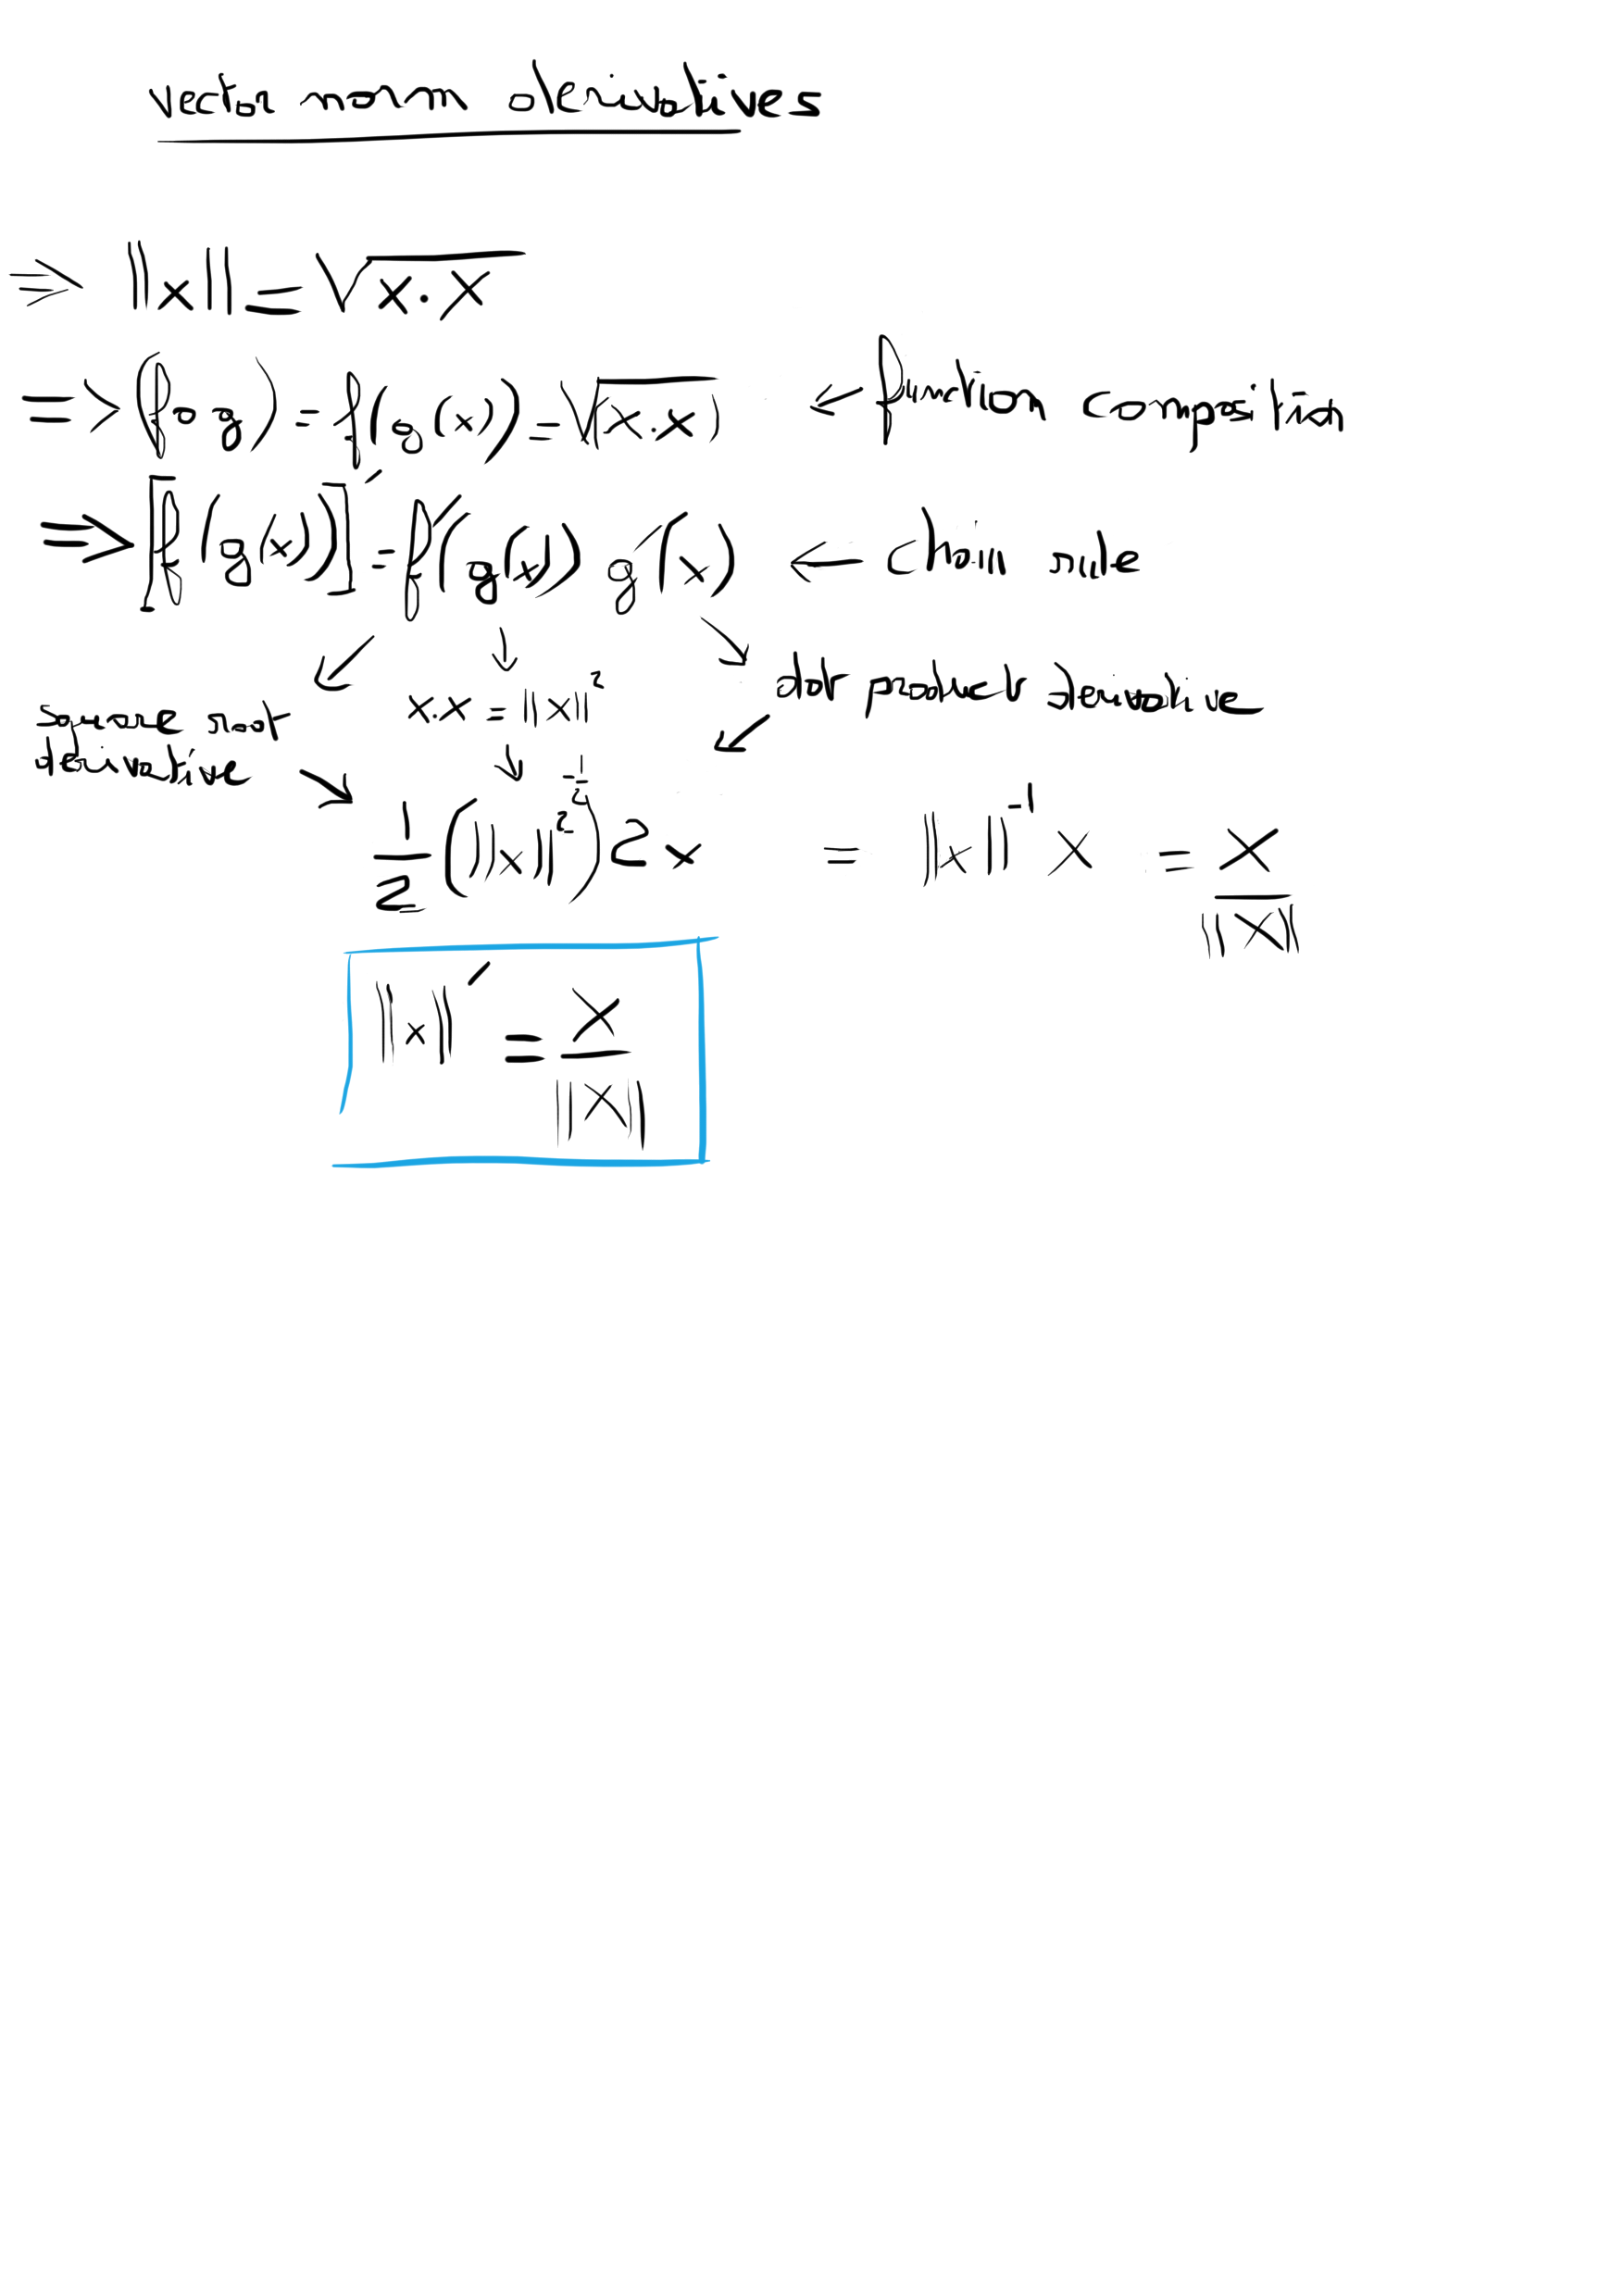 vector norm derivatives
⇒ ||x|| = √x·x
⇒ (f∘g) = f(g(x)) = √(x·x) ← function composition
⇒ [f(g(x))]′ = f′(g(x)) g′(x) ← chain rule
↙ ↓ ↘
square root derivative
x·x = ||x||²
dot products derivative
↘ ↓ ↙
1/2 (||x||²)^(-1/2) 2x = ||x||⁻¹ x = x/||x||
||x||′ = x/||x||